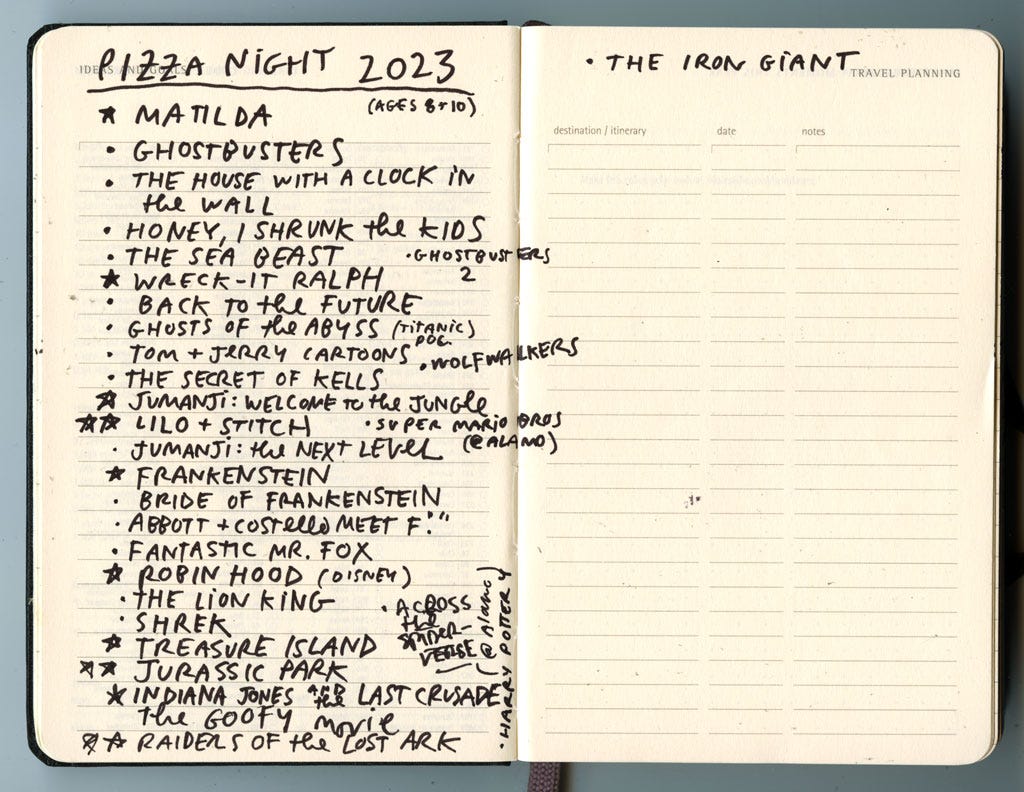 IDEAS AND GOALS
PIZZA NIGHT 2023
(AGES 8+10)
★ MATILDA
• GHOSTBUSTERS
• THE HOUSE WITH A CLOCK IN
the WALL
• HONEY, I SHRUNK the KIDS
• THE SEA BEAST
• GHOSTBUSTERS
2
★ WRECK-IT RALPH
• BACK TO the FUTURE
• GHOSTS OF the ABYSS (TITANIC)
DOC.
• TOM + JERRY CARTOONS
• WOLFWALKERS
• THE SECRET OF KELLS
★ JUMANJI: WELCOME TO the JUNGLE
★★ LILO + STITCH
• SUPER MARIO BROS
(@ALAMO)
• JUMANJI: the NEXT LEVEL
★ FRANKENSTEIN
• BRIDE OF FRANKENSTEIN
• ABBOTT + COSTELLO MEET F.""
• FANTASTIC MR. FOX
★ ROBIN HOOD (DISNEY)
• THE LION KING
• SHREK
• ACROSS
the
SPIDER-
VERSE
(@Alamo)
★ TREASURE ISLAND
★★ JURASSIC PARK
★ INDIANA JONES AND the LAST CRUSADE
the GOOFY movie
★★ RAIDERS OF the LOST ARK
• HARRY POTTER Y
• THE IRON GIANT
TRAVEL PLANNING
destination / itinerary date notes